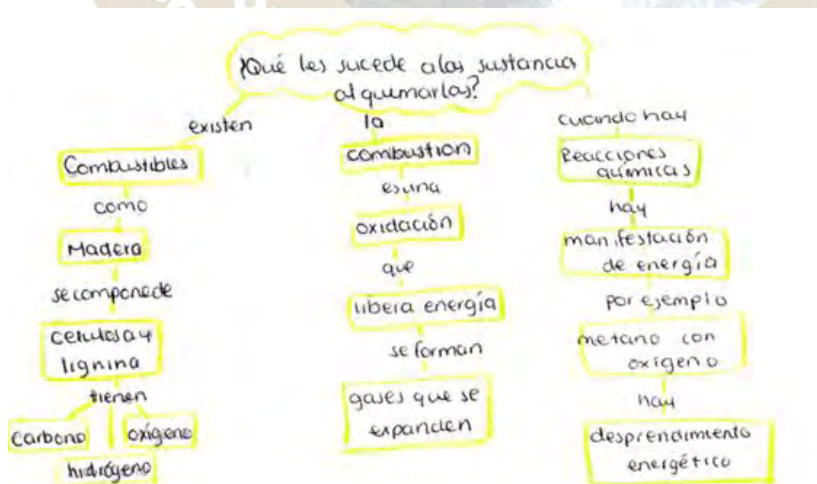 ¿Qué les sucede a las sustancias
al quemarlas?
existen
Combustibles
como
Madera
se compone de
celulosa y
lignina
tienen
Carbono
oxígeno
hidrógeno
la
combustion
es una
oxidación
que
libera energía
se forman
gases que se
expanden
cuando hay
Reacciones
químicas
hay
manifestación
de energía
por ejemplo
metano con
oxígeno
hay
desprendimiento
energético